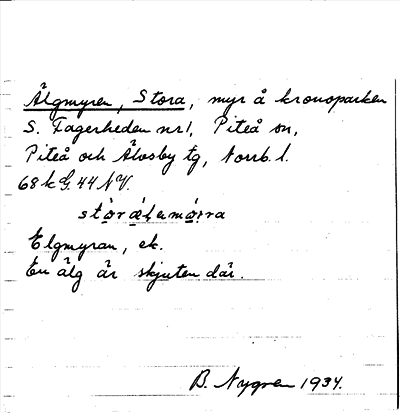 Älgmyren, Stora, myr å kronoparken
S. Fagerheden nr 1, Piteå sn,
Piteå och Älvsby tg, Norrb. l.
68 k G. 44 NV.
Elgmyran, ek.
En älg är skjuten där.
B. Nygren 1934.